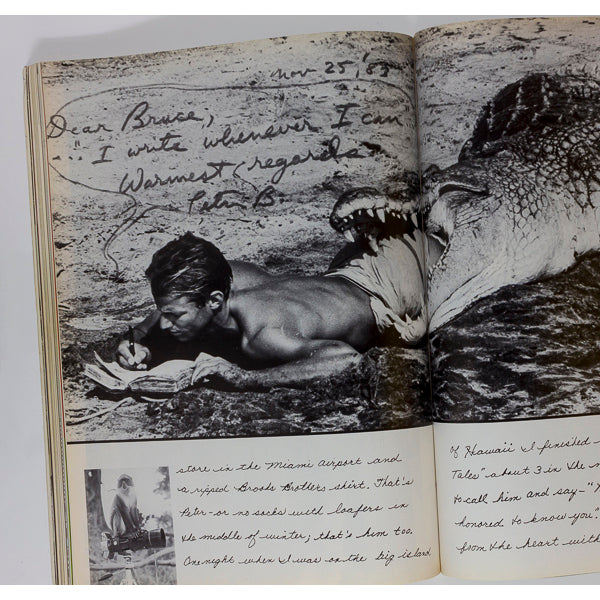 Nov 25, '83
Dear Bruce,
..."I write whenever I can
Warmest regards
Peter B.
store in the Miami airport and
a ripped Brooks Brothers shirt. That's
Peter-or no socks with loafers in
the middle of winter; that's him too.
One night when I was on the big island
of Hawaii I finished
Tales" about 3 in the
to call him and say-"
honored to know you"
from the heart with